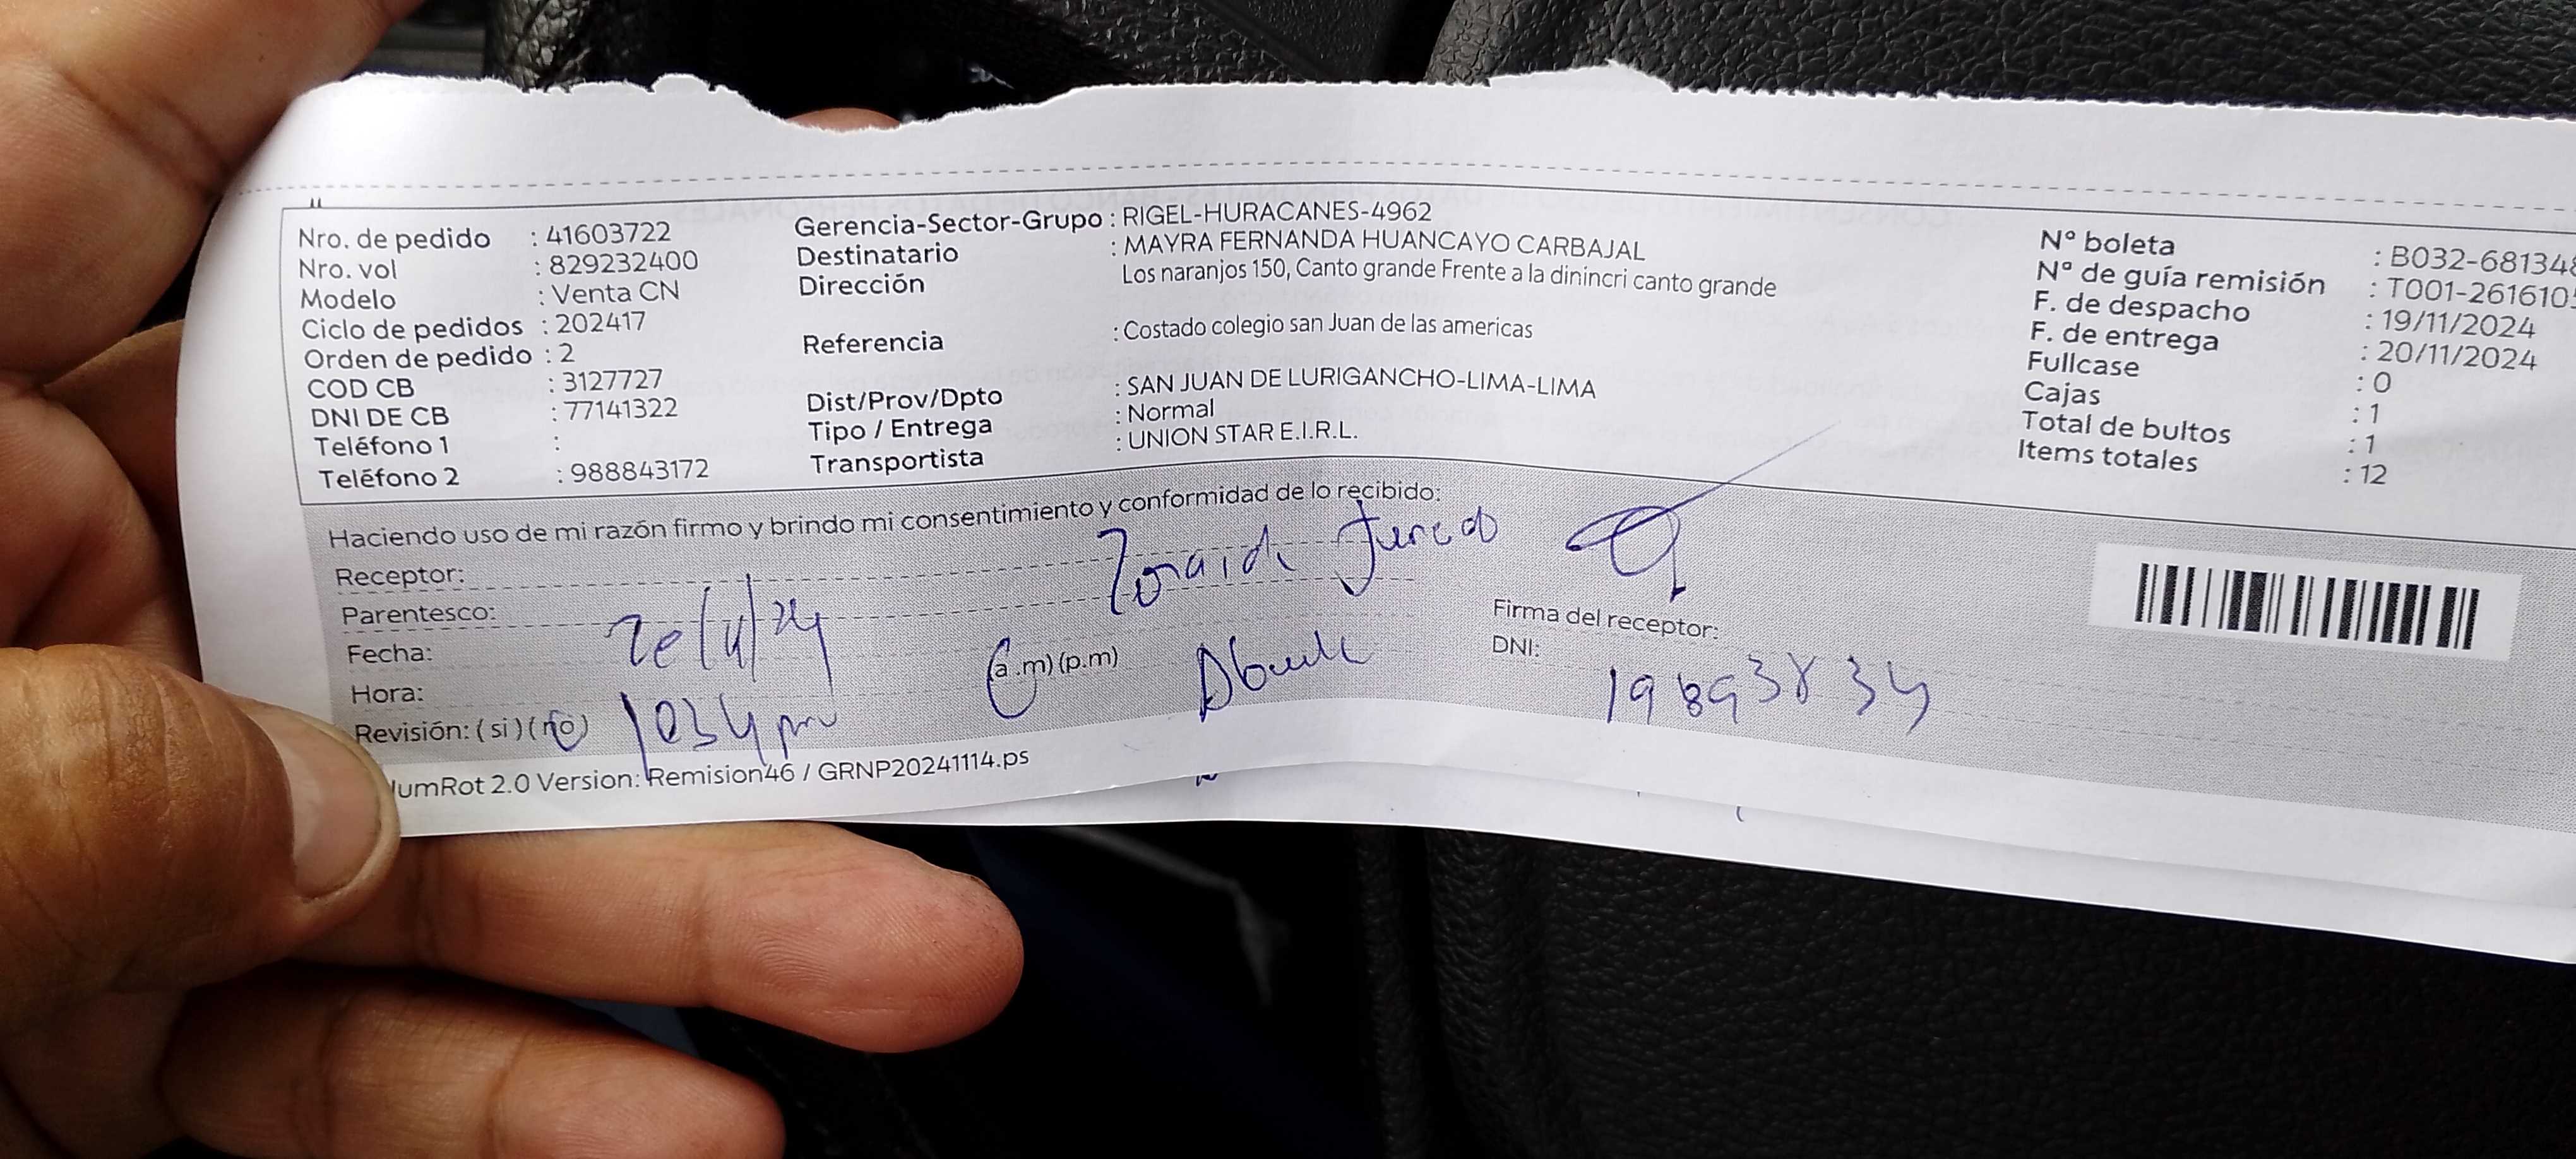 Nro. de pedido : 41603722
Nro. vol : 829232400
Modelo : Venta CN
Ciclo de pedidos : 202417
Orden de pedido : 2
COD CB : 3127727
DNI DE CB : 77141322
Teléfono 1 :
Teléfono 2 : 988843172
Gerencia-Sector-Grupo : RIGEL-HURACANES-4962
Destinatario : MAYRA FERNANDA HUANCAYO CARBAJAL
Dirección Los naranjos 150, Canto grande Frente a la dinincri canto grande
Referencia : Costado colegio san Juan de las americas
Dist/Prov/Dpto : SAN JUAN DE LURIGANCHO-LIMA-LIMA
Tipo / Entrega : Normal
Transportista : UNION STAR E.I.R.L.
Nº boleta : B032-68134
Nª de guía remisión : T001-261610
F. de despacho : 19/11/2024
F. de entrega : 20/11/2024
Fullcase : 0
Cajas : 1
Total de bultos : 1
Items totales : 12
Haciendo uso de mi razón firmo y brindo mi consentimiento y conformidad de lo recibido:
Receptor:
Parentesco:
Fecha:
Hora: (a .m) (p.m)
Revisión: ( si ) ( no ) 1034 pm
Firma del receptor:
DNI: 19893834
umRot 2.0 Version: Remision46 / GRNP20241114.ps